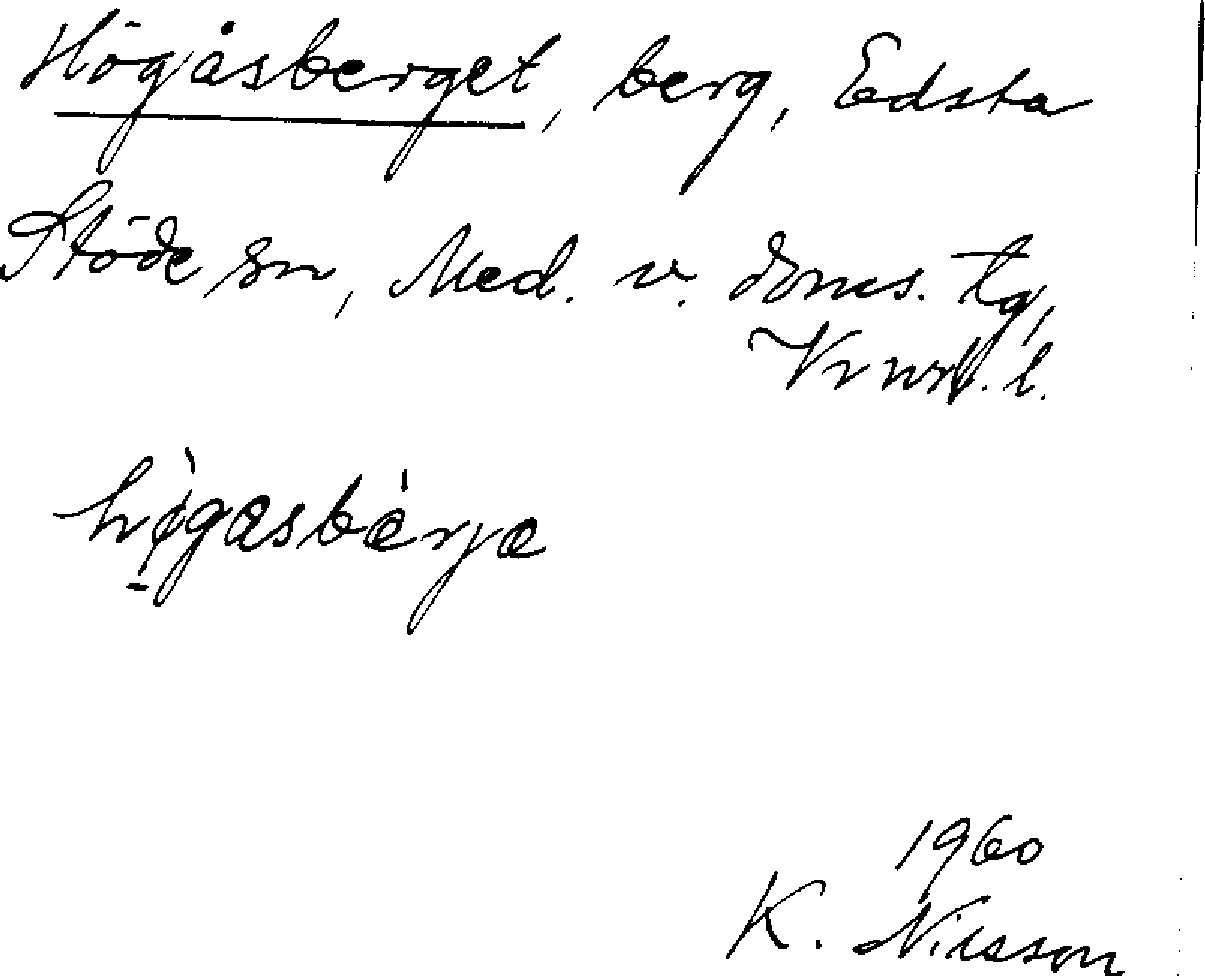 Högåsberget, berg, Edsta
Stöde sn, Med. v. doms. tg,
Vnrl. l.
högasbærje
1960
K. Nilsson